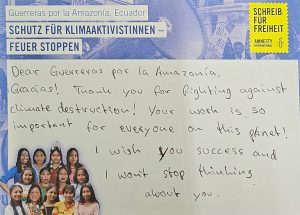 Guerreras por la Amazonía, Ecuador
SCHUTZ FÜR KLIMAAKTIVISTINNEN –
FEUER STOPPEN
SCHREIB
FÜR
FREIHEIT
AMNESTY
INTERNATIONAL
Dear Guerreras por la Amazonía,
Gracias! Thank you for fighting against
climate destruction! Your work is so
important for everyone on this planet!
I wish you success and
I won't stop thinking
about you.